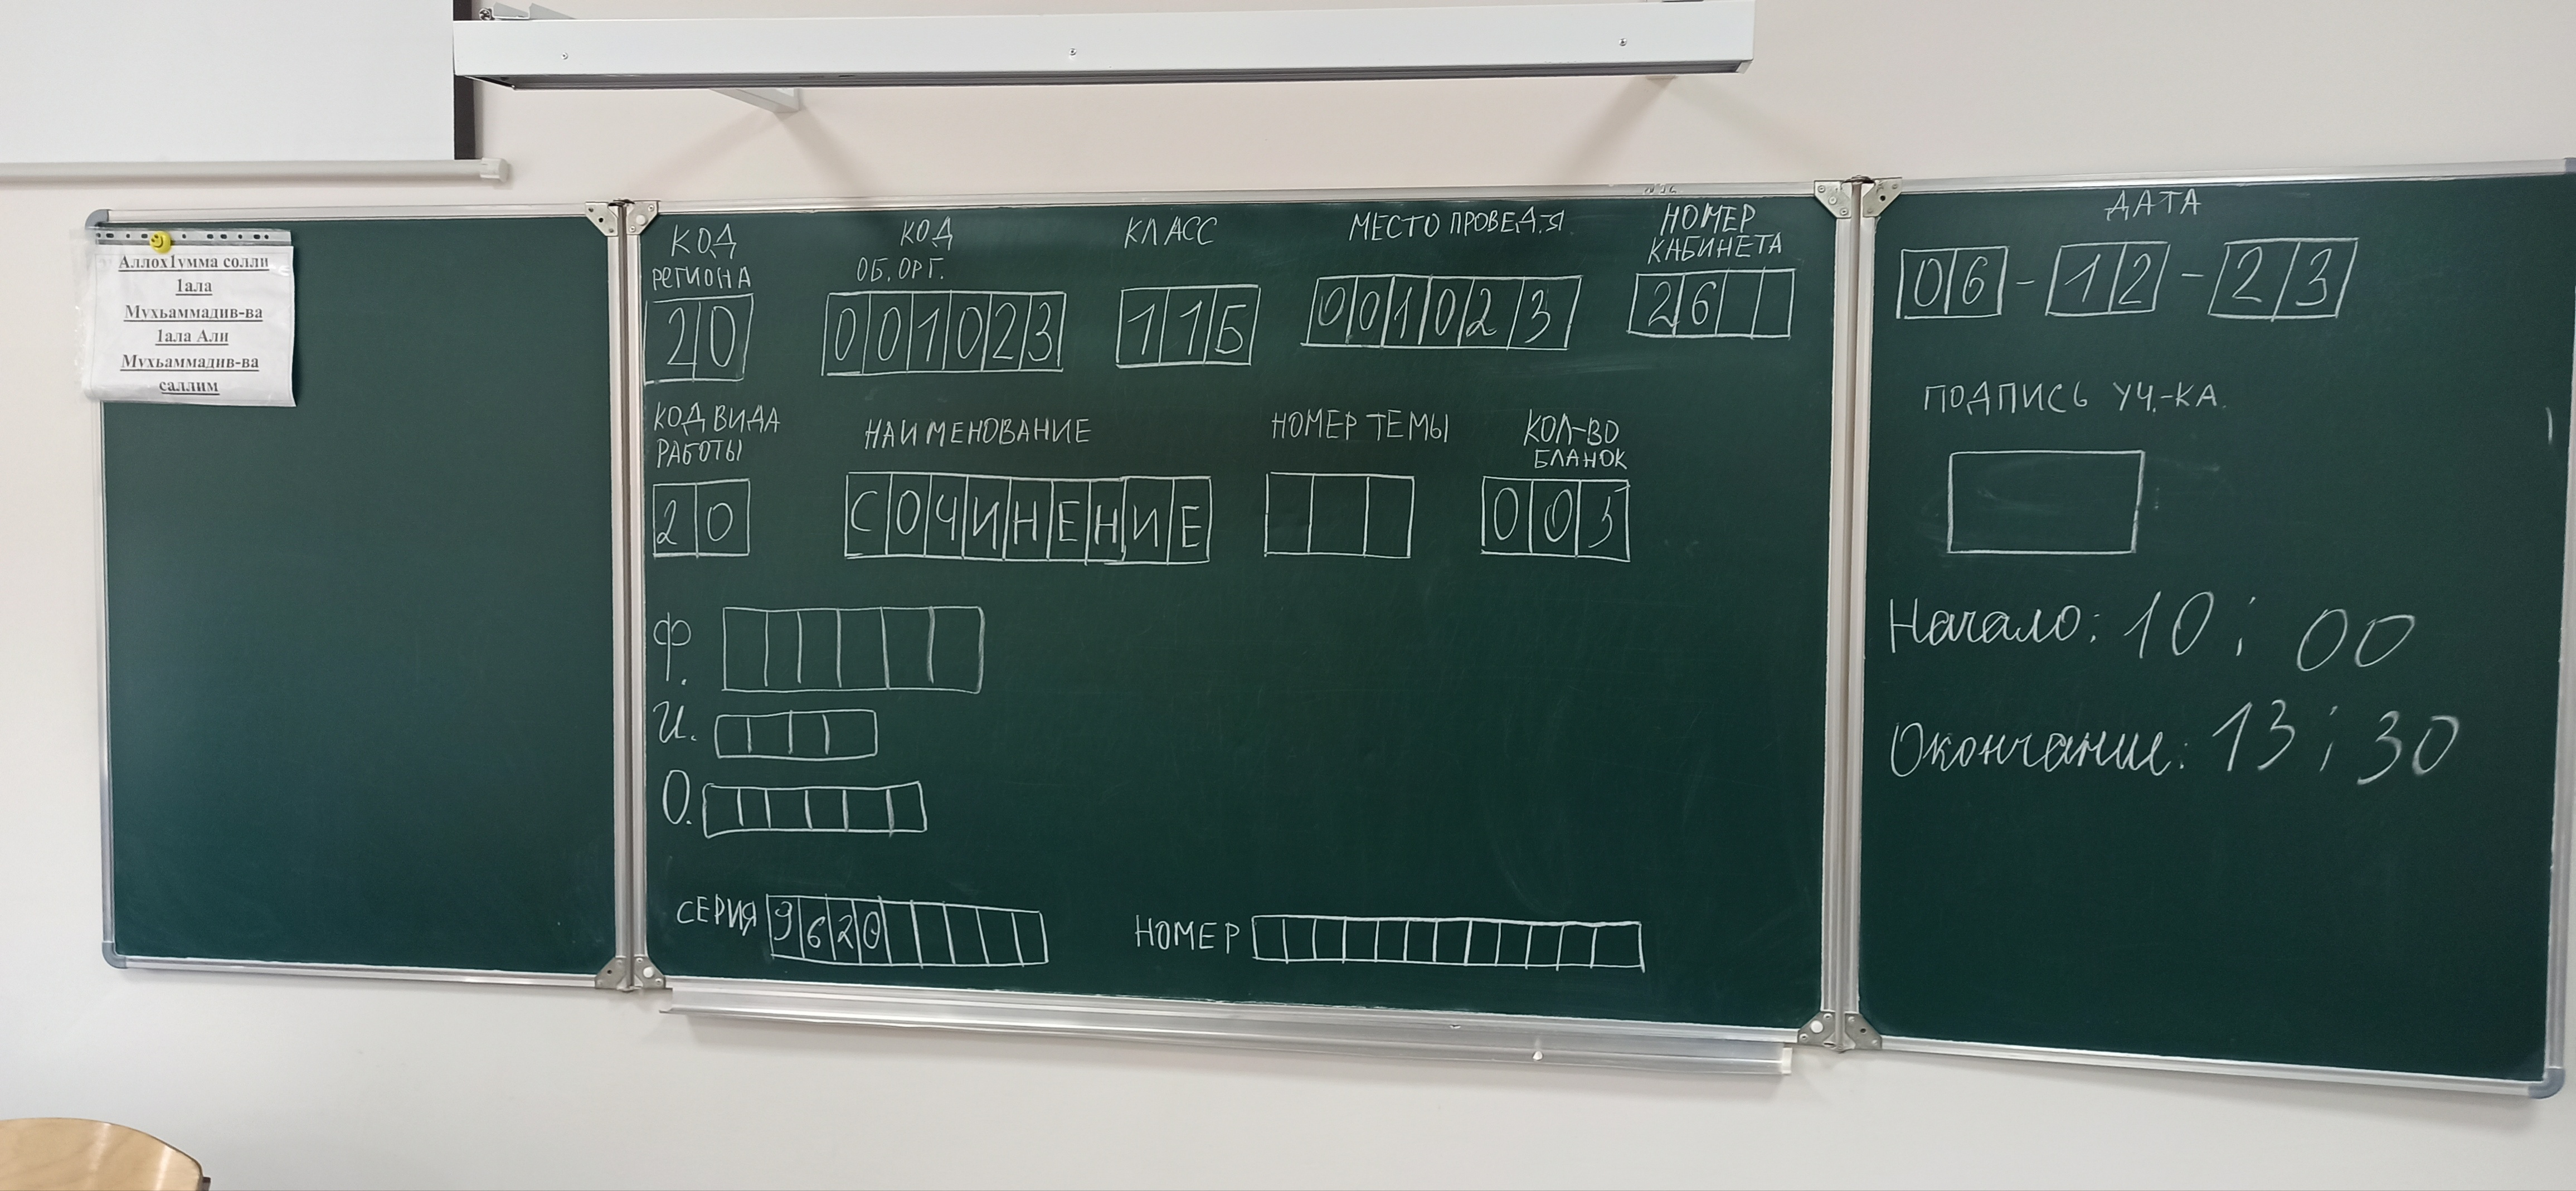 Аллох1умма солли
1ала
Мухьаммадив-ва
1ала Али
Мухьаммадив-ва
саллим
КОД РЕГИОНА
20
КОД ОБ. ОРГ.
001023
КЛАСС
11Б
МЕСТО ПРОВЕД-Я
001023
НОМЕР КАБИНЕТА
26
КОД ВИДА РАБОТЫ
20
НАИМЕНОВАНИЕ
СОЧИНЕНИЕ
НОМЕР ТЕМЫ
КОЛ-ВО БЛАНОК
005
Ф.
И.
О.
СЕРИЯ 9620
НОМЕР
ДАТА
06-12-23
ПОДПИСЬ УЧ.-КА.
Начало: 10:00
Окончание: 13:30